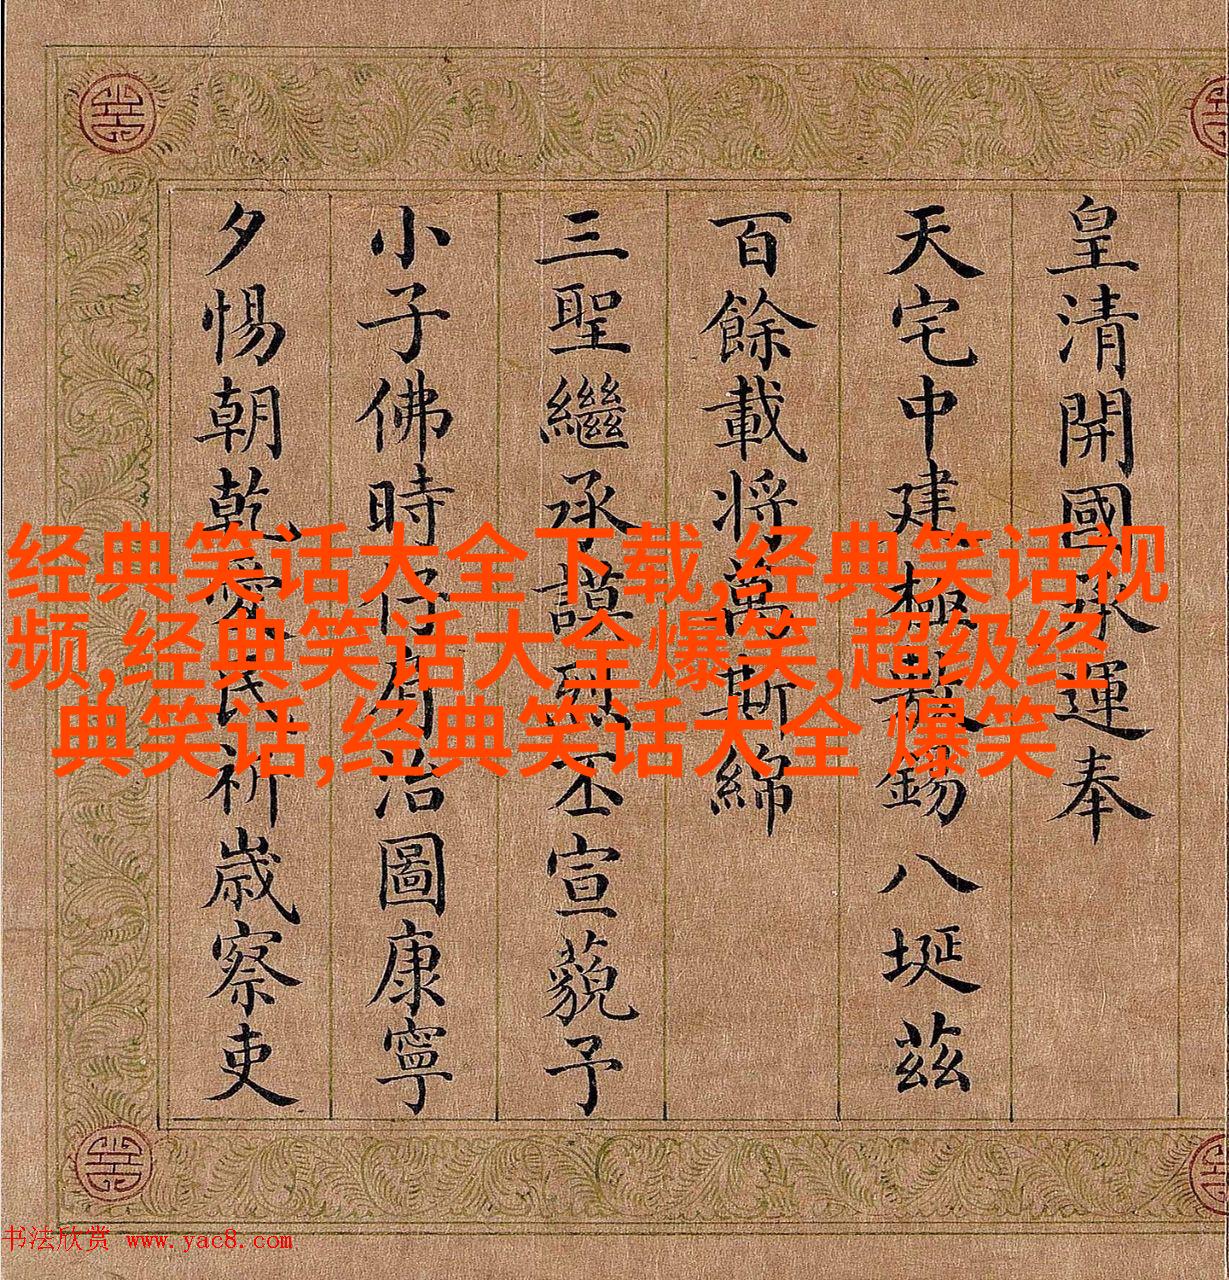 皇清開國承運奉
天宅中建極敷錫八埏茲
百餘載將萬斯綿
三聖繼承謨烈丕宣藐予
小子佛時仔肩治圖康寧
夕惕朝乾愛民祈歲察吏
经典笑话大全下载,经典笑话视
频,经典笑话大全爆笑,超级经
典笑话,经典笑话大全 爆笑
书法欣赏 www.yac8.com